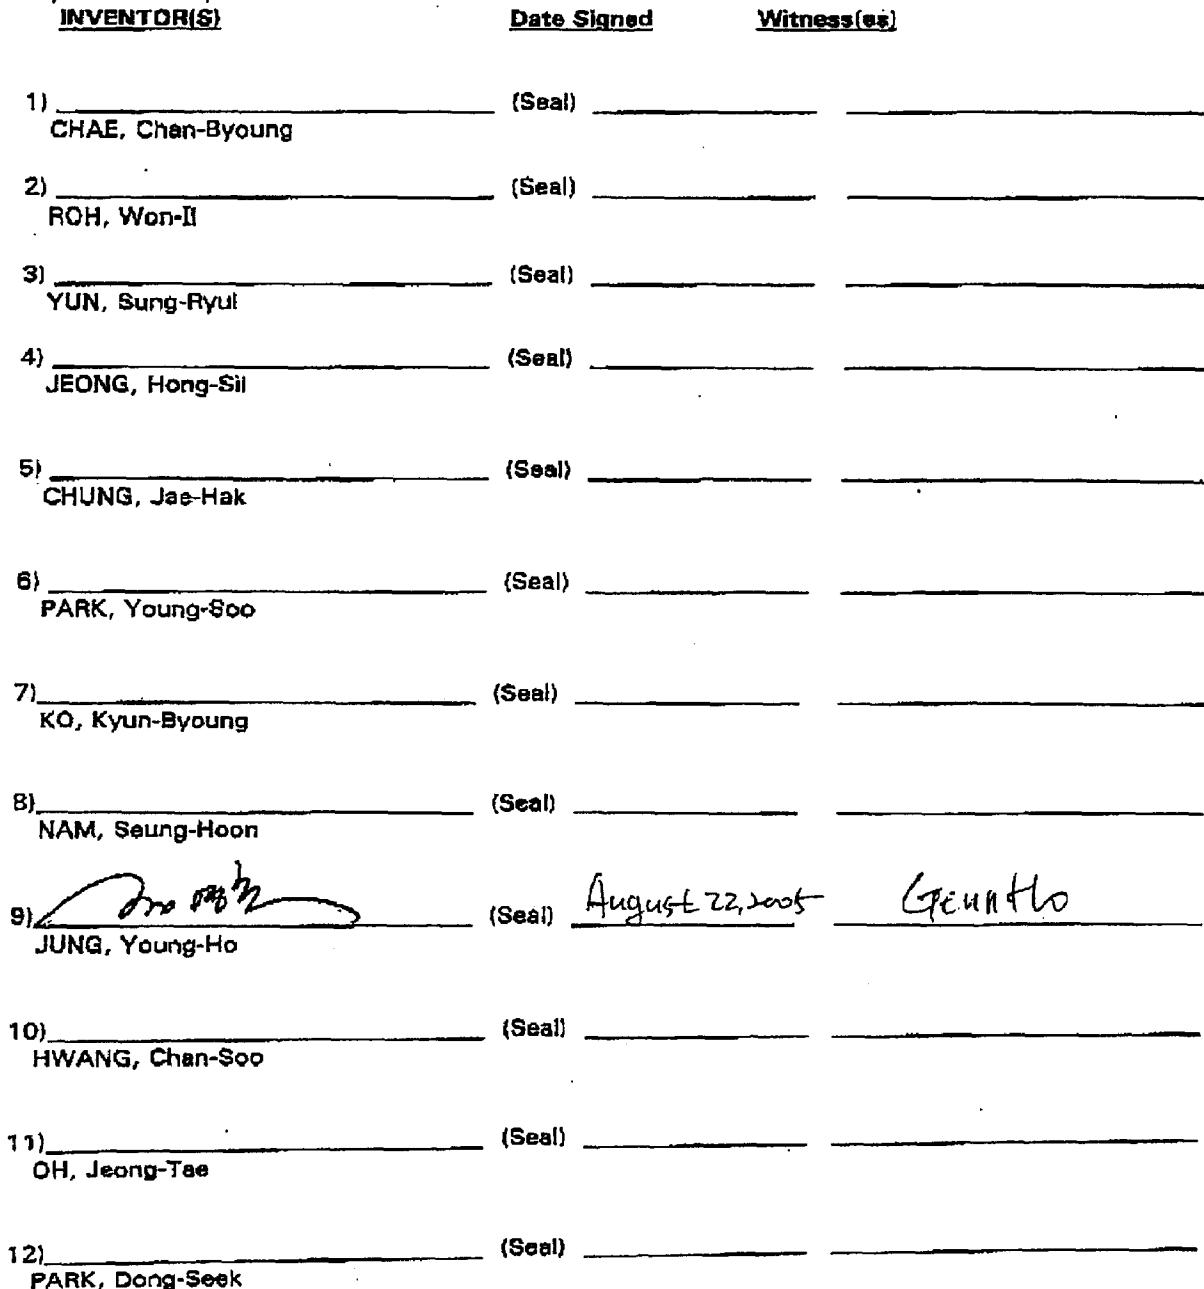 INVENTOR(S) Date Signed Witness(es)
1) (Seal)
CHAE, Chan-Byoung
2) (Seal)
ROH, Won-Il
3) (Seal)
YUN, Sung-Ryul
4) (Seal)
JEONG, Hong-Sil
5) (Seal)
CHUNG, Jae-Hak
6) (Seal)
PARK, Young-Soo
7) (Seal)
KO, Kyun-Byoung
8) (Seal)
NAM, Seung-Hoon
9) (Seal) August 22, 2005
JUNG, Young-Ho
10) (Seal)
HWANG, Chan-Soo
11) (Seal)
OH, Jeong-Tae
12) (Seal)
PARK, Dong-Seek